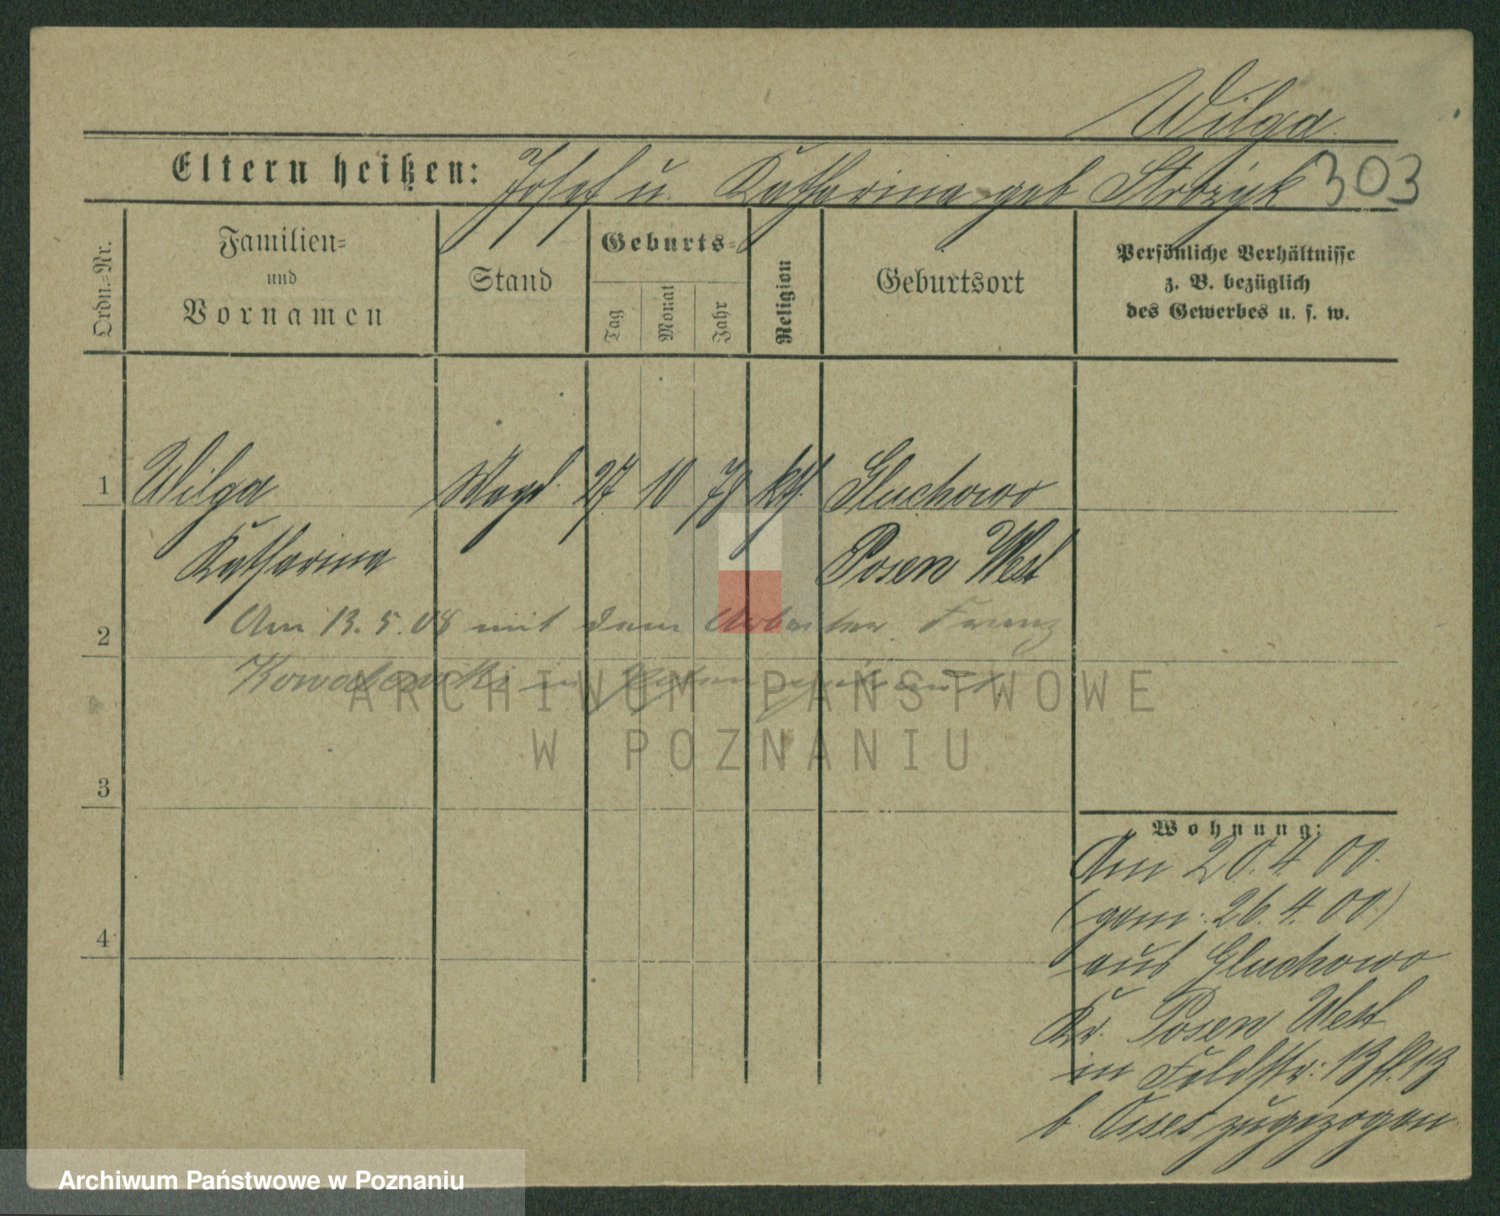 Wilga
Eltern heißen: Josef u. Katharina geb Strózyk 303
Ordn.-Nr.
Familien-
und
Vornamen
Stand
Geburts-
Tag
Monat
Jahr
Religion
Geburtsort
Persönliche Verhältnisse
z. B. bezüglich
des Gewerbes u. s. w.
1 Wilga Magd 27 10 78 kth. Gluchowo
Katharina Posen West
2 Am 13.5.08 mit dem Arbeiter Franz
Kowalewski in
ARCHIWUM PAŃSTWOWE
W POZNANIU
3
4
Wohnung:
Am 20.4.00.
(gem: 26.4.00)
aus Gluchowo
Kr. Posen West
in Feldstr: 13
b. zugezogen
Archiwum Państwowe w Poznaniu